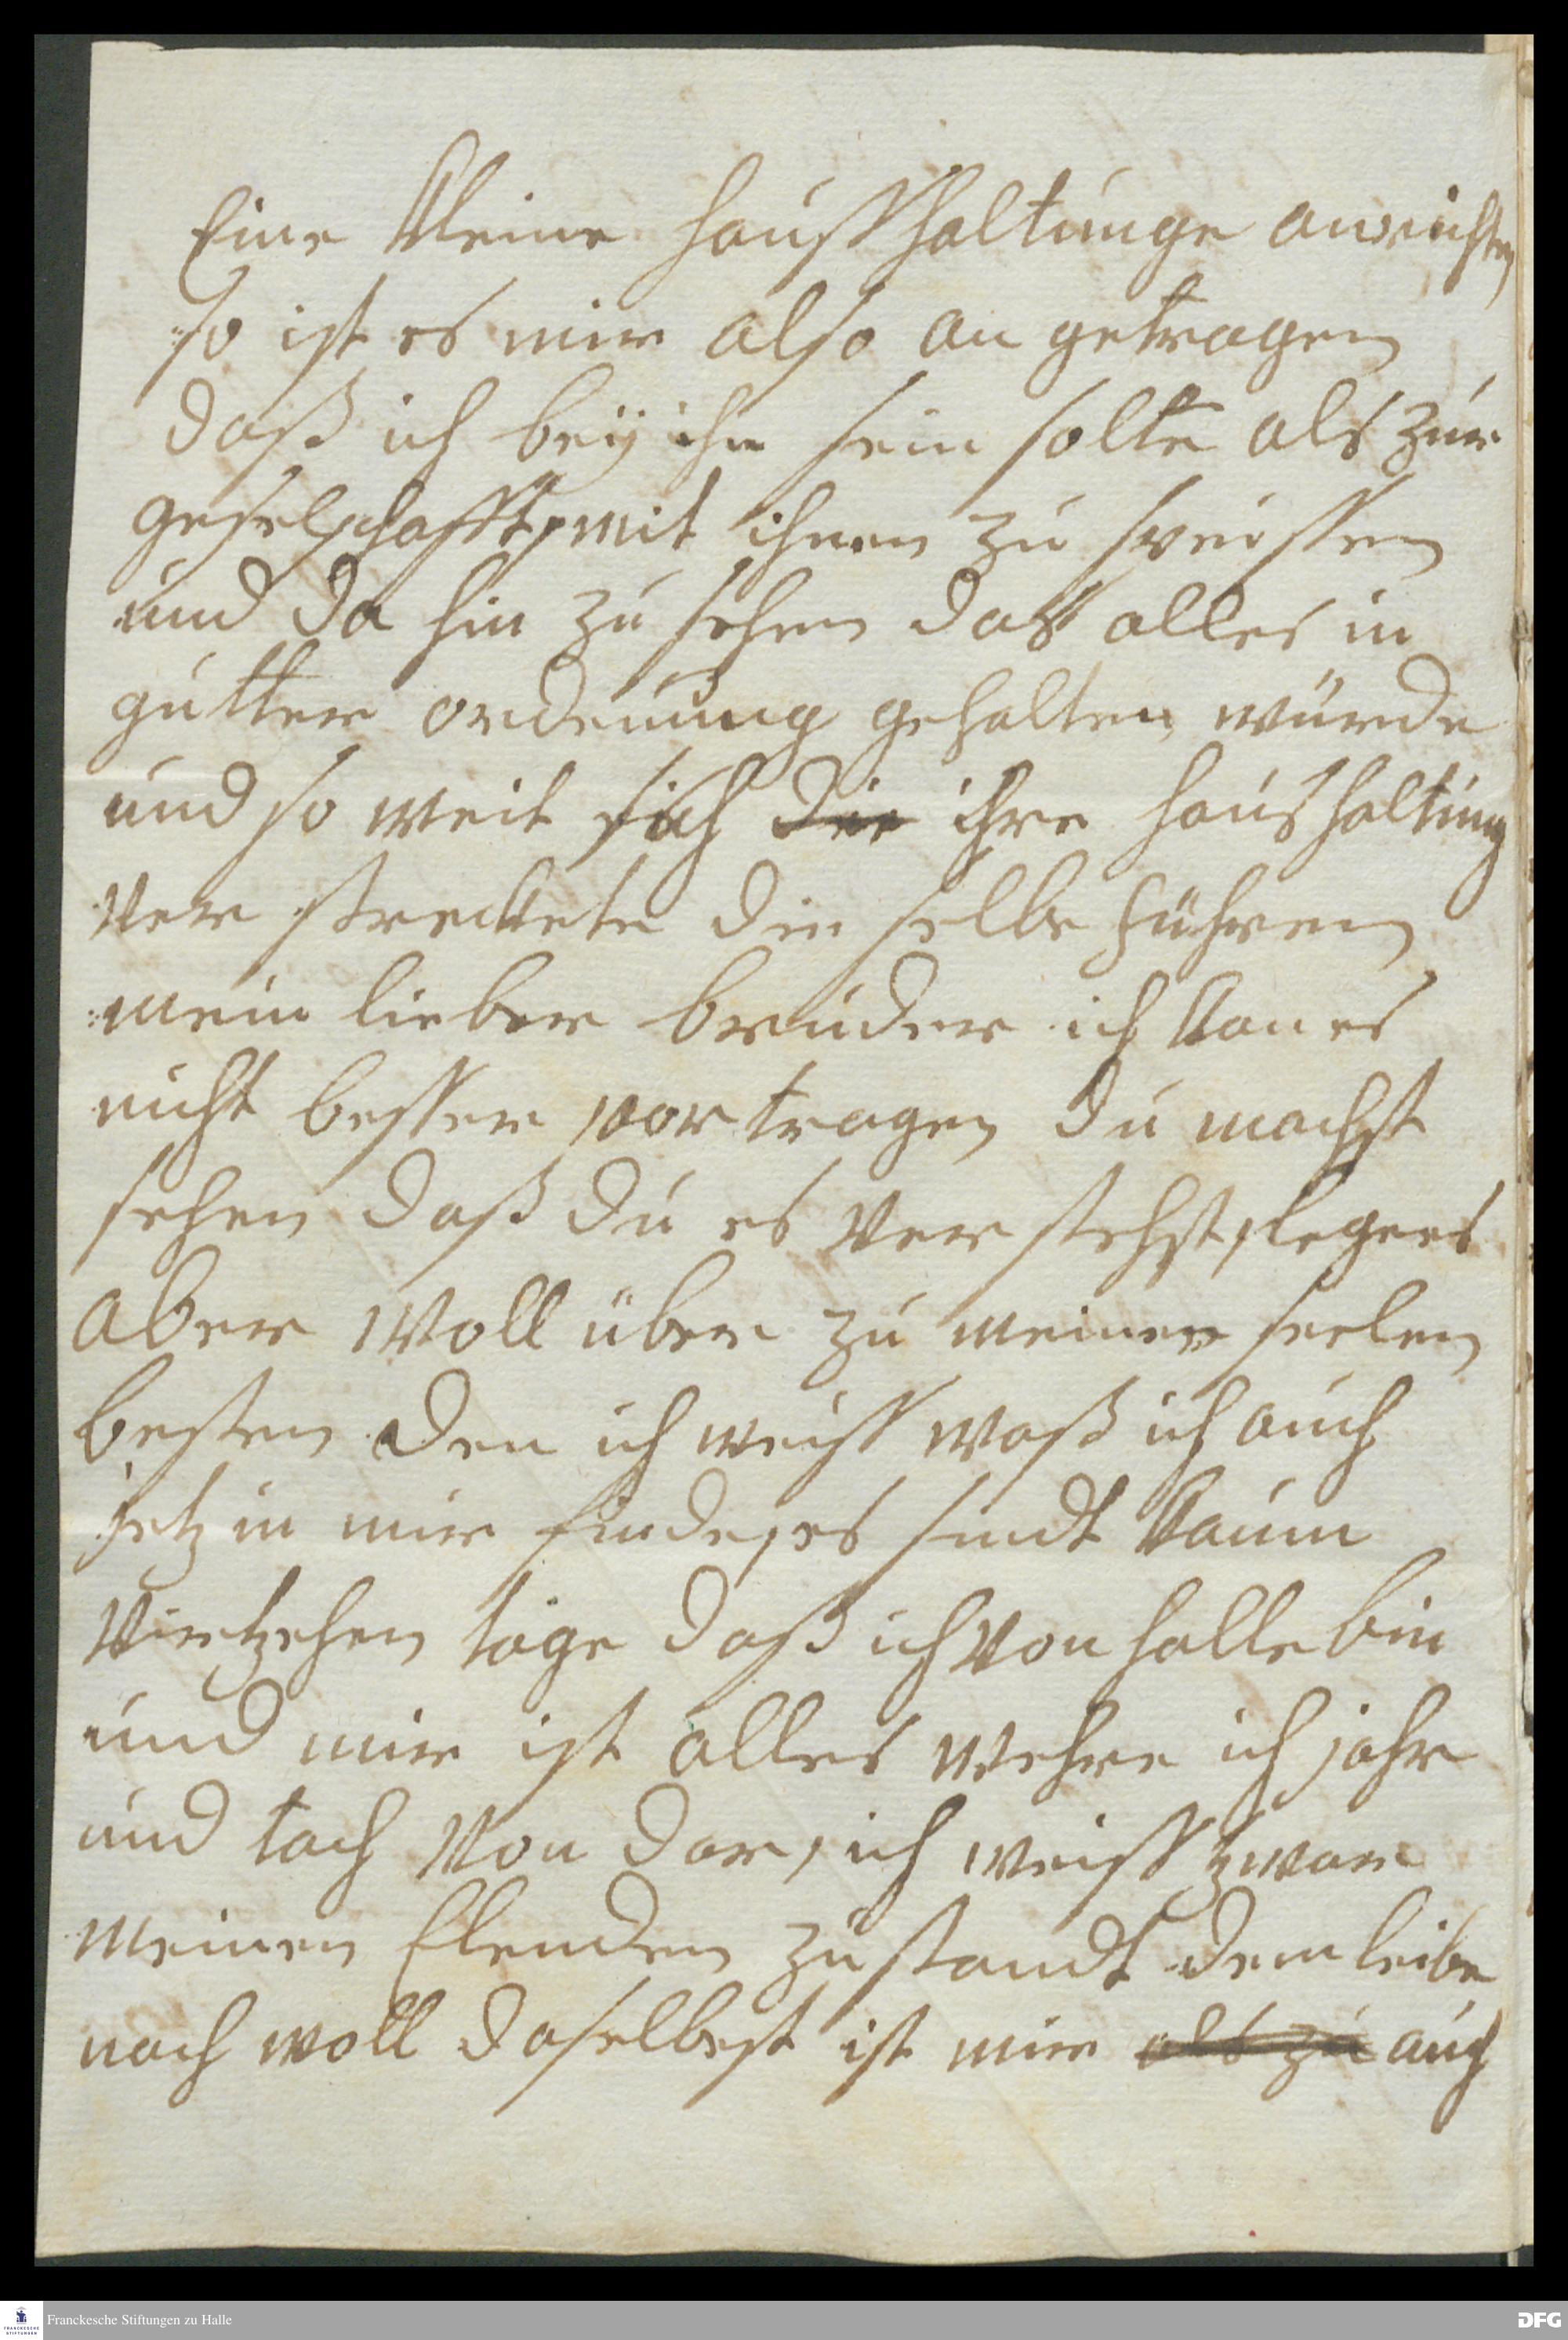 Eine kleine haußhaltunge anrichten
so ist es mir also an getragen
daß ich beÿ ihr sein solte als zur
geselschafft, mit ihnen zu speissen
und da hin zu sehen dass alles in
gutter ordenung gehalten würde
und so weit sich die ihre haushaltung
ver streckete die selbe führen
mein lieber bruder ich kan es
nicht besser vortragen du machst
sehen daß du es ver stehst, lege es
aber woll über zu meiner seelen
besten den ich weiss waß ich auch
jetz in mir finde, es sindt kaum
viertzehen tage daß ich von halle bin
und mir ist alles wehre ich jahr
und tach von dar, ich weiss zwar
meinen Elenden zustandt dem leibe
nach woll daselbest ist mir als zu auch
Franckesche Stiftungen zu Halle
FRANCKESCHE
STIFTUNGEN
DFG